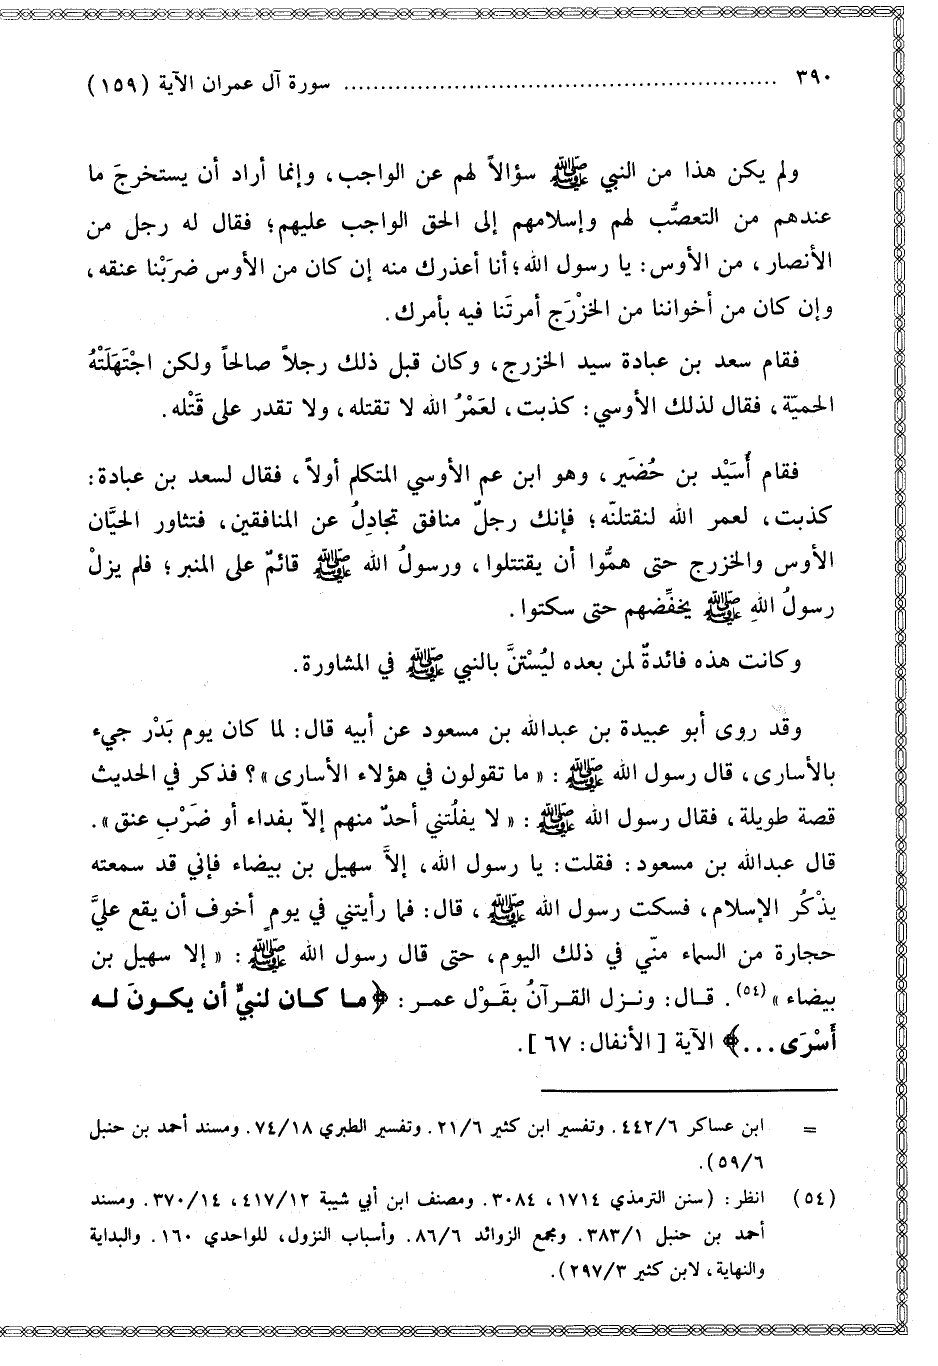 ٣٩٠ ........................................................ سورة آل عمران الآية (١٥٩)
ولم يكن هذا من النبي ﷺ سؤالاً لهم عن الواجب، وإنما أراد أن يستخرجَ ما
عندهم من التعصُّب لهم وإسلامهم إلى الحق الواجب عليهم؛ فقال له رجل من
الأنصار، من الأوس: يا رسول الله؛ أنا أعذرك منه إن كان من الأوس ضرَبْنا عنقه،
وإن كان من أخواننا من الخزْرَج أمرتَنا فيه بأمرك.
فقام سعد بن عبادة سيد الخزرج، وكان قبل ذلك رجلاً صالحاً ولكن اجْتَهَلَتْهُ
الحميّة، فقال لذلك الأوسي: كذبت، لعَمْرُ الله لا تقتله، ولا تقدر على قَتْله.
فقام أُسَيْد بن حُضَير، وهو ابن عم الأوسي المتكلم أولاً، فقال لسعد بن عبادة:
كذبت، لعمر الله لنقتلنّه؛ فإنك رجلٌ منافق تجادِلُ عن المنافقين، فتثاور الحيَّان
الأوس والخزرج حتى همُّوا أن يقتتلوا، ورسولُ الله ﷺ قائمٌ على المنبر؛ فلم يزلْ
رسولُ اللهِ ﷺ يخفِّضهم حتى سكتوا.
وكانت هذه فائدةٌ لمن بعده ليُسْتنَّ بالنبي ﷺ في المشاورة.
وقد روى أبو عبيدة بن عبدالله بن مسعود عن أبيه قال: لما كان يوم بَدْر جيء
بالأسارى، قال رسول الله ﷺ: «ما تقولون في هؤلاء الأسارى»؟ فذكر في الحديث
قصة طويلة، فقال رسول الله ﷺ: «لا يفلُتني أحدٌ منهم إلاّ بفداء أو ضَرْبِ عنق».
قال عبدالله بن مسعود: فقلت: يا رسول الله، إلاَّ سهيل بن بيضاء فإني قد سمعته
يذْكُر الإسلام، فسكت رسول الله ﷺ، قال: فما رأيتني في يومٍ أخوف أن يقع عليَّ
حجارة من السماء منّي في ذلك اليوم، حتى قال رسول الله ﷺ: «إلا سهيل بن
بيضاء»(٥٤). قال: ونزل القرآنُ بقَوْل عمر: ﴿ما كان لنبيٍّ أن يكونَ له
أَسْرَى...﴾ الآية [الأنفال: ٦٧].
= ابن عساكر ٤٤٢/٦. وتفسير ابن كثير ٢١/٦. وتفسير الطبري ٧٤/١٨. ومسند أحمد بن حنبل
٥٩/٦).
(٥٤) انظر: (سنن الترمذي ١٧١٤، ٣٠٨٤. ومصنف ابن أبي شيبة ٤١٧/١٢، ٣٧٠/١٤. ومسند
أحمد بن حنبل ٣٨٣/١. ومجمع الزوائد ٨٦/٦. وأسباب النزول، للواحدي ١٦٠. والبداية
والنهاية، لابن كثير ٢٩٧/٣).